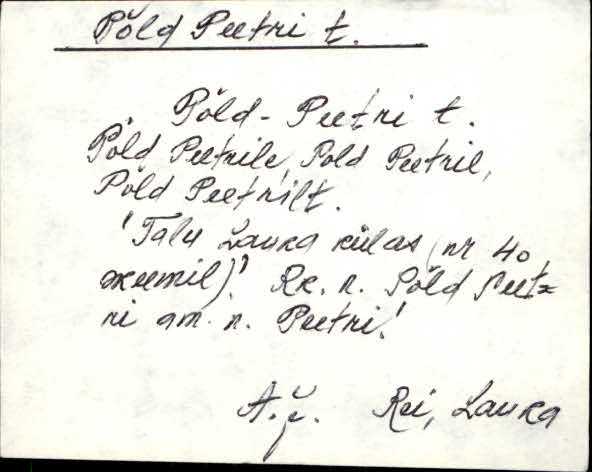 Põld Peetri t.
Põld-Peetri t.
Põld Peetrile, Põld Peetril,
Põld Peetrilt.
'Talu Lauka külas (nr 40
skeemil)'. Rk. n. Põld Peet=
ri am. n. Peetri.'
Rei, Lauka